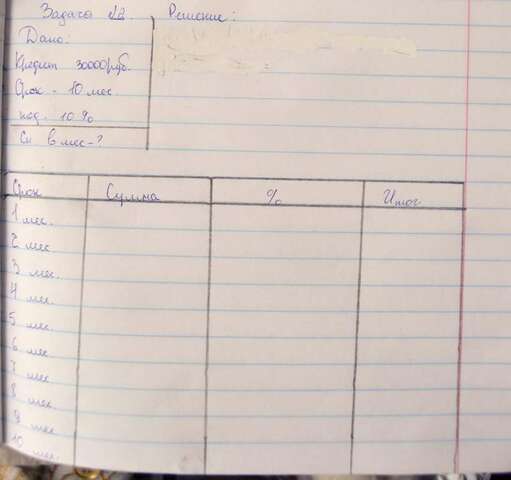 Задача №2. Решение:
Дано:
Кредит 30000 руб.
Срок - 10 мес.
под 10 %
См в мес-?
Срок Сумма % Итог
1 мес.
2 мес
3 мес.
4 мес.
5 мес.
6 мес
7 мес.
8 мес.
9 мес
10 мес.